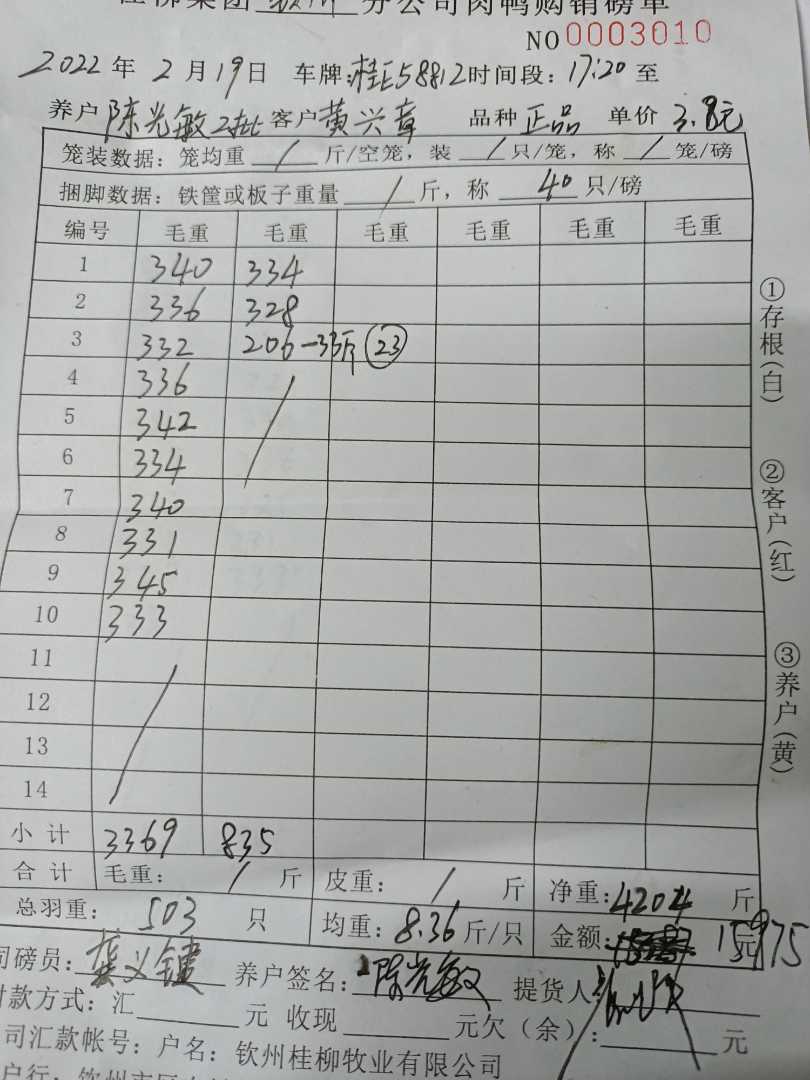 桂柳集团 钦州 分公司肉鸭购销磅单
NO 0003010
2022 年 2 月 19 日 车牌:桂E58812 时间段: 17:20 至
养户 陈光敏2批 客户 黄兴章 品种 正品 单价 3.8元
笼装数据: 笼均重 / 斤/空笼, 装 / 只/笼, 称 / 笼/磅
捆脚数据: 铁筐或板子重量 / 斤, 称 40 只/磅
编号 毛重 毛重 毛重 毛重 毛重 毛重
1 340 334
2 336 328
3 332 206-33斤 23
4 336 /
5 342
6 334
7 340
8 331
9 345
10 333
11 /
12
13
14
小计 3369 835
合计 毛重: / 斤 皮重: / 斤 净重: 4204 斤
总羽重: 503 只 均重: 8.36 斤/只 金额: 15975 元
司磅员: 龚义键 养户签名: 陈光敏 提货人:
付款方式: 汇 元 收现 元欠(余): 元
司汇款帐号: 户名: 钦州桂柳牧业有限公司
户行: 钦州市区
①存根(白)
②客户(红)
③养户(黄)